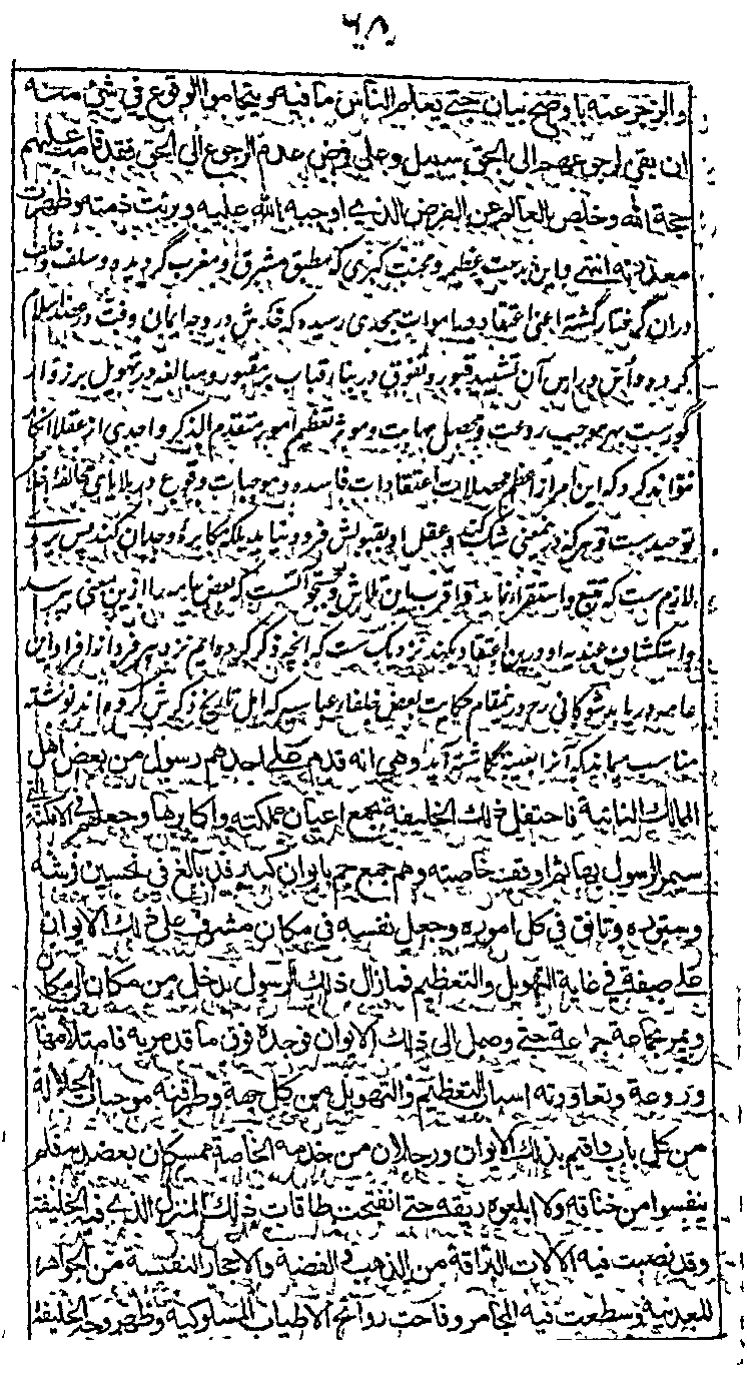 ٦٨
والزجر عنه باوضح بيان حتى يعلم الناس ما فيه ويتحاموا الوقوع في شيئ منه
ان بقي لرجوعهم الى الحق سبيل وعلى فرض عدم الرجوع الى الحق فقد قامت عليهم
حجة الله وخلص العالم عن الفرض الذي اوجبه الله عليه وبرئت ذمته وظهرت
معذرته انتهى واين بدعت عظمى ومحنت كبرى كه مطبق مشرق ومغرب گرديده وسلف وخلف
دران گرفتار گشته اعنى اعتقاد در اموات بحدى رسيده كه خدش در وجه ايمان وفت در عضد اسلام
كرده ورأس در اين آن تشييد قبور وتفوق در بناء قباب بر مقبور ومبالغه در تهويل بر زوار
گورست بهر موجب روعت ومحصل مهابت ومورث تعظيم امور متقدم الذكر واحدى از عقلا انكار
نتواند كرد كه اين امر از اعظم محصلات اعتقادات فاسده وموجبات وقوع در بلاياى مخالف اخلاص
توحيدست وهر كه در معنى شك كند وعقل او بقبولش فرود نيايد بلكه مكابره وجدان كند پس بروى
لازم ست كه تتبع واستقرا نمايد واقرب اين تلاش وتجسس آنست كه بعض عامه را ازين معنى بپرسد
واستكشاف عنديه او درين اعتقاد بكند نزديك ست كه انچه ذكر كرده ايم نزد هر فرد از افراد اين
عامه دريابد شوكانى رح درينمقام حكايت بعض خلفاء عباسيه كه اهل تاريخ ذكرش كرده اند نوشته
مناسب مينمايد كه آنرا بعينه نگاشته آيد وهي انه قدم على احدهم رسول من بعض اهل
الممالك النائية فاحتفل ذلك الخليفة بجمع اعيان مملكته واكابرها وجعلهم في الامكنة التي
سيمر الرسول بها ثم اوقف خاصته وهم جمع جم بايوان كبير قد بالغ في تحسين فرشه
وستوره وتانق في كل اموره وجعل نفسه في مكان مشرف على ذلك الايوان
على صفة في غاية التهويل والتعظيم فمازال ذلك الرسول يدخل من مكان الى مكان
ويمر بجماعة جماعة حتى وصل الى ذلك الايوان فوجده فوق ما قد مر به فامتلأ مهابة
وروعة وتعاورته اسباب التعظيم والتهويل من كل جهة وطرقته موجبات الجلالة
من كل باب واقيم بذلك الايوان ورجلان من خدمه الخاصة ممسكان بعضديه فلم
ينفسوا من خناقه ولا ابلعوه ريقه حتى انفتحت طاقات ذلك المنزل الذي فيه الخليفة
وقد نصبت فيه الآلات البراقة من الذهب والفضة والاحجار النفيسة من الجواهر
المعدنية وسطعت فيه المجامر وفاحت روائح الاطياب الملوكية وظهر وجه الخليفة